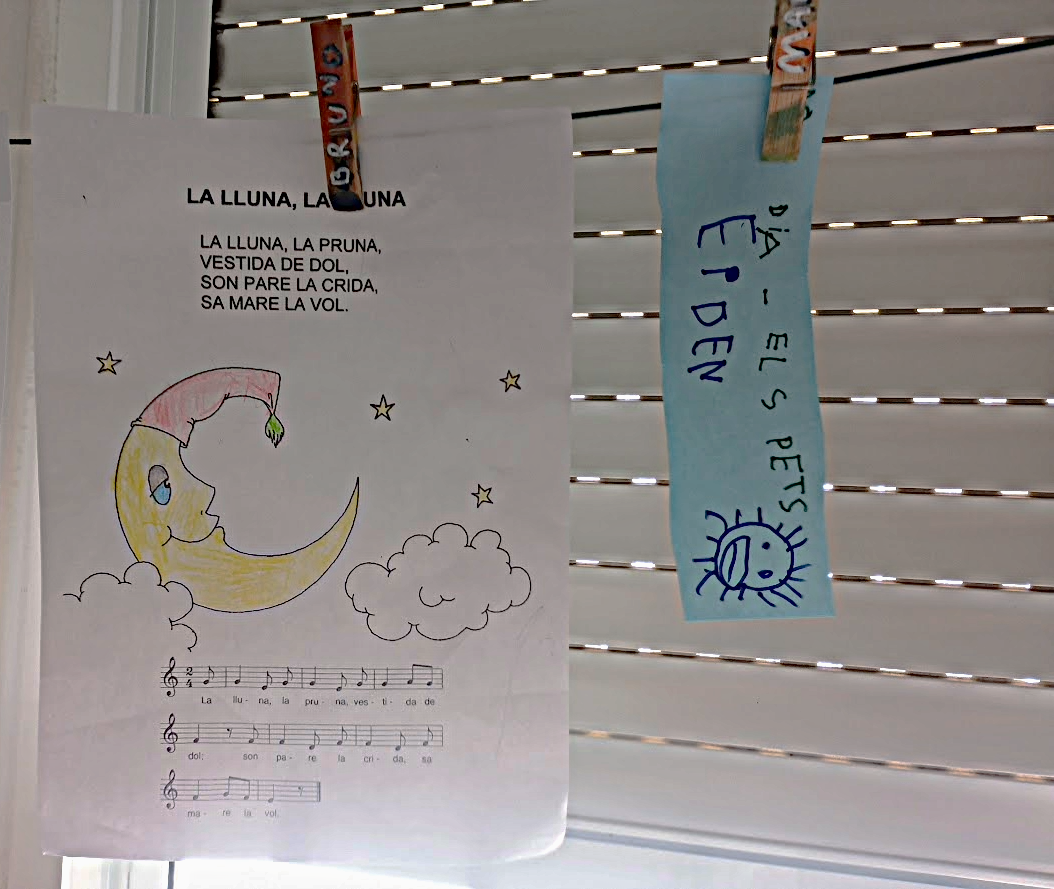 BRIUNO
LA LLUNA, LA UNA
LA LLUNA, LA PRUNA,
VESTIDA DE DOL,
SON PARE LA CRIDA,
SA MARE LA VOL.
La llu - na, la pru - na, ves - ti - da de
dol; son pa - re la cri - da, sa
ma - re la vol.
DÍA - ELS PETS
EPDEN